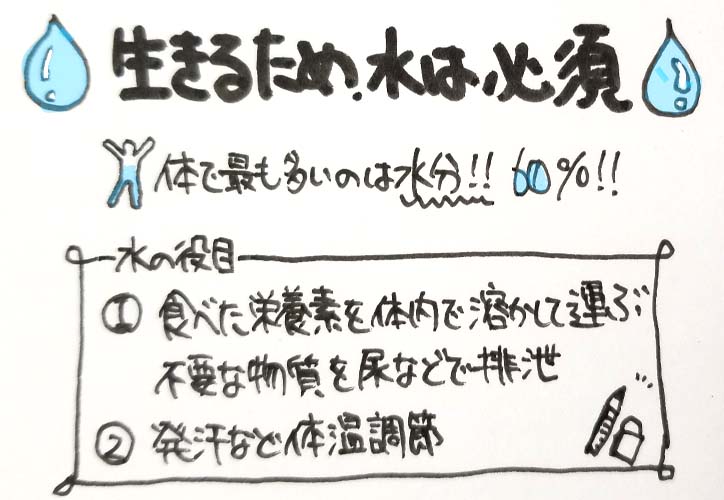 生きるため、水は必須
体で最も多いのは水分!! 60%!!
水の役目
① 食べた栄養素を体内で溶かして運ぶ
不要な物質を尿などで排泄
② 発汗など体温調節